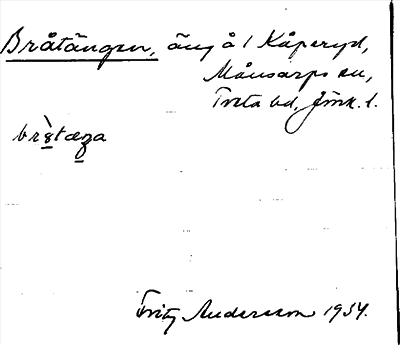 Bråtängen, äng å 1 Kåperyd,
Månsarps sn,
Tveta hd, Jönk. l.
Fritz Andersson 1934.